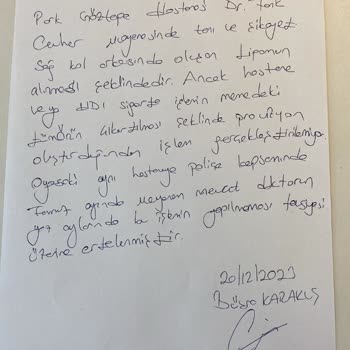 Park Göztepe Hastanesi Dr. Tarık
muayenesinde tanı ve şikayet
Sağ kol arkasında oluşan lipomun
alınması şeklindedir. Ancak hastane
veya sigorta işlemin memedeki
tümörün çıkartılması şeklinde provizyon
oluşturduğundan işlem gerçekleştirilemiyor.
Oysaki aynı hastaneye poliçe kapsamında
Temmuz ayında muayenem mevcut doktorun
yaz aylarında bu işlemin yapılmaması tavsiyesi
üzerine ertelenmiştir.
20/12/2023
Büşra KARAKUŞ